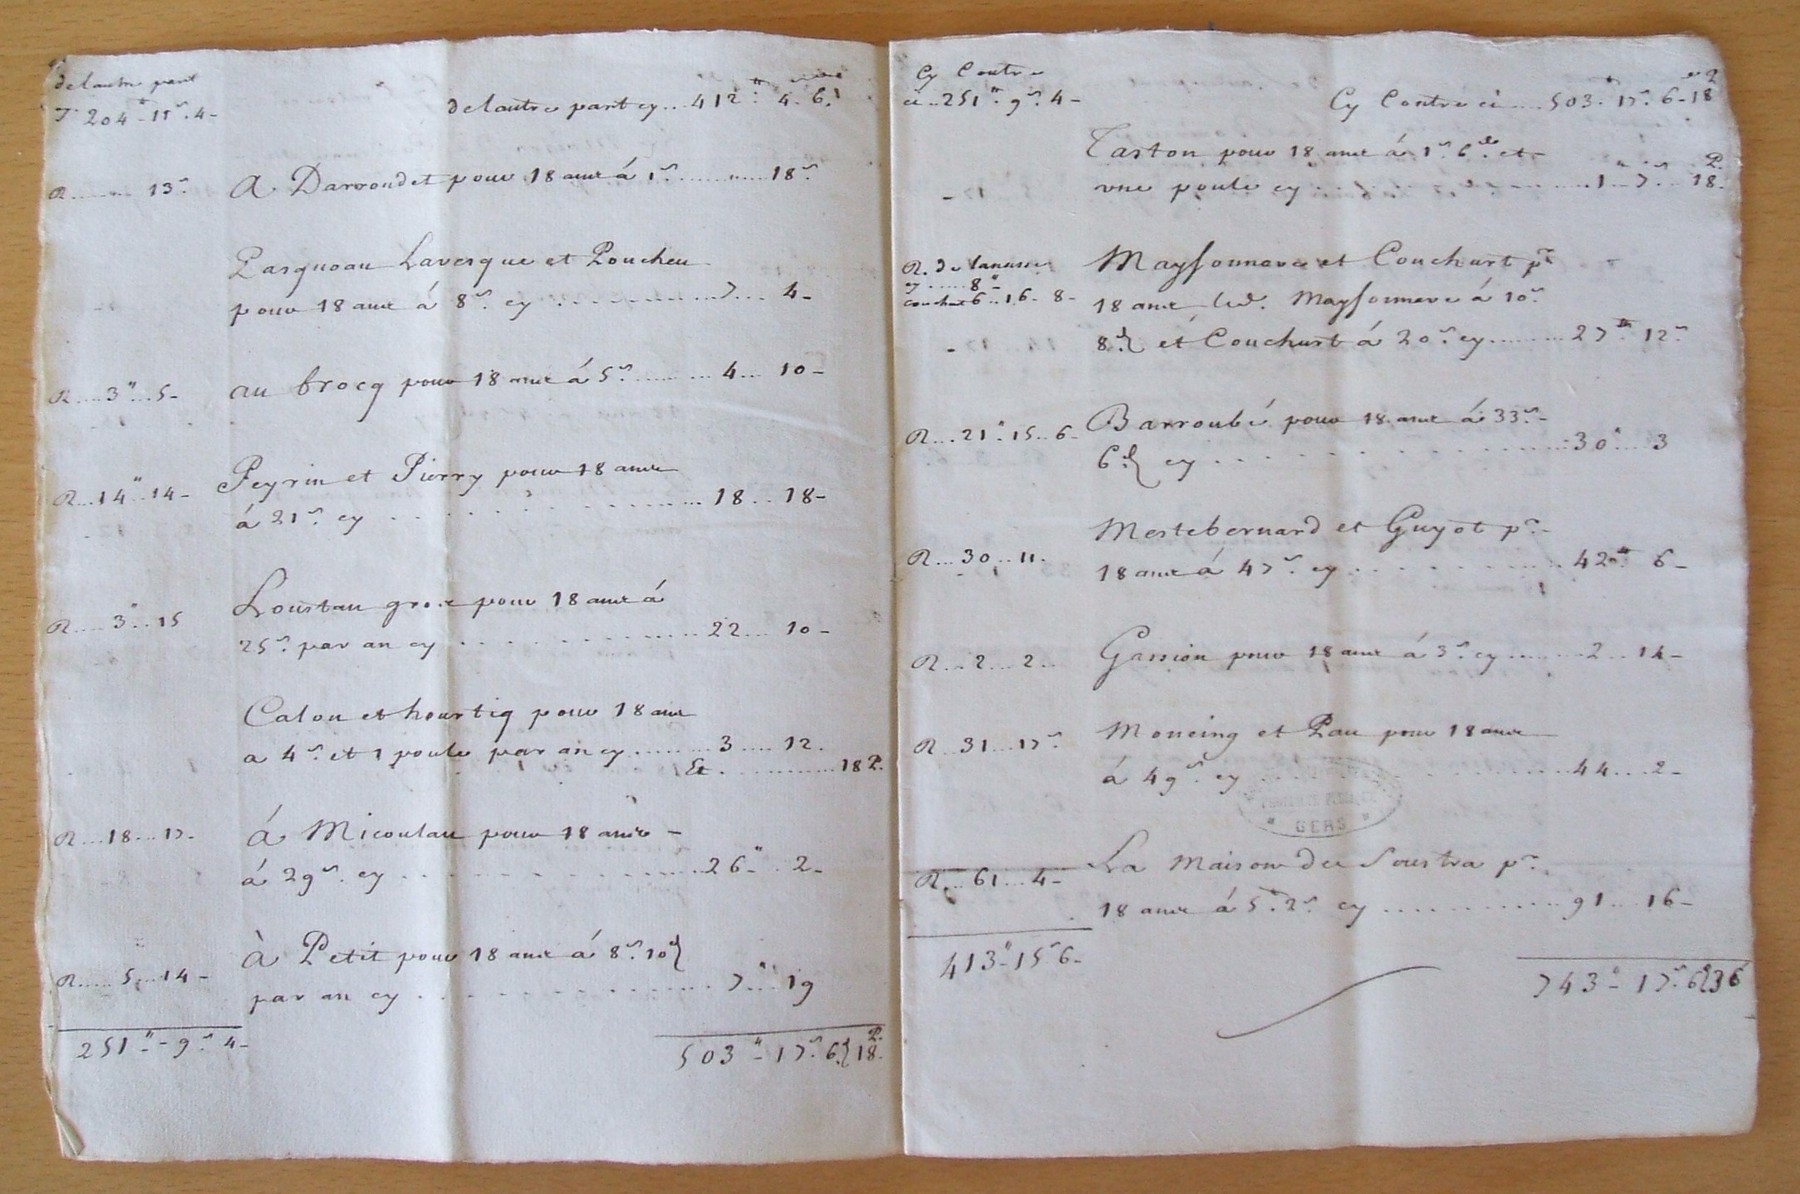 de lautre part
204 - 15ˢ - 4 -
de lautre part cy... 412ᵗᵗ 4. 6.
R........ 13ˢ
A Darroudet pour 18 ans á 1ˢ............18ˢ
Pasquoau Lavesque et Poucheu
pour 18 ans á 8ˢ cy ............ 7... 4 -
R....3"..5 -
au brocq pour 18 ans á 5ˢ........ 4... 10 -
Peyrin et Pierry pour 18 ans
R...14"..14 -
á 21ˢ. cy ............... 18... 18 -
Loustau pour 18 ans á
R....3"..15
25ˢ. par an cy ............ 22... 10 -
Calou et hourtiq pour 18 ans
a 4ˢ. et 1 poule par an cy........ 3.... 12.
Et ............ 18 P.
R...18...17 -
á Micoulau pour 18 ans -
á 29ˢ. cy ............... 26"... 2 -
à Petit pour 18 ans á 8ˢ. 10ᵈ
R.....5...14 -
par an cy ............... 7"... 19
251" - 9ˢ 4 -
503" - 17ˢ 6ᵈ 18 P.
Cy Contre
ci.. 251ᵗᵗ 9ˢ. 4 -
Cy Contre ci.... 503. 17ˢ. 6 - 18
Taston pour 18 ans á 1ˢ. 6ᵈ et
une poule cy ............... 1" 7ˢ... 18 P.
R.
Maysonnave et Couchurt pʳ
cy..... 8"
couchut 6.. 16. 8 -
18 ans Maysonnave á 10ˢ.
8ᵈ et Couchurt á 20ˢ. cy........ 27ᵗᵗ 12ˢ
Barroubé pour 18 ans á 33ˢ. -
R...21"..15..6 -
6ᵈ cy ............... 30"... 3
Mestebernard et Guyot pʳ. -
R...30..11.
18 ans á 47ˢ. cy ............ 42ᵗᵗ 6 -
R...2...2..
Gassion pour 18 ans á 3ˢ. cy ....... 2.. 14 -
R..31...17ˢ
Moncing et Pau pour 18 ans
á 49ˢ. cy ............... 44... 2 -
GERS
La Maison de Soustra pʳ.
R...61...4 -
18 ans á 5. 2ˢ. cy ............ 91... 16 -
413" - 15ˢ 6 -
743" - 17ˢ. 6ᵈ 36